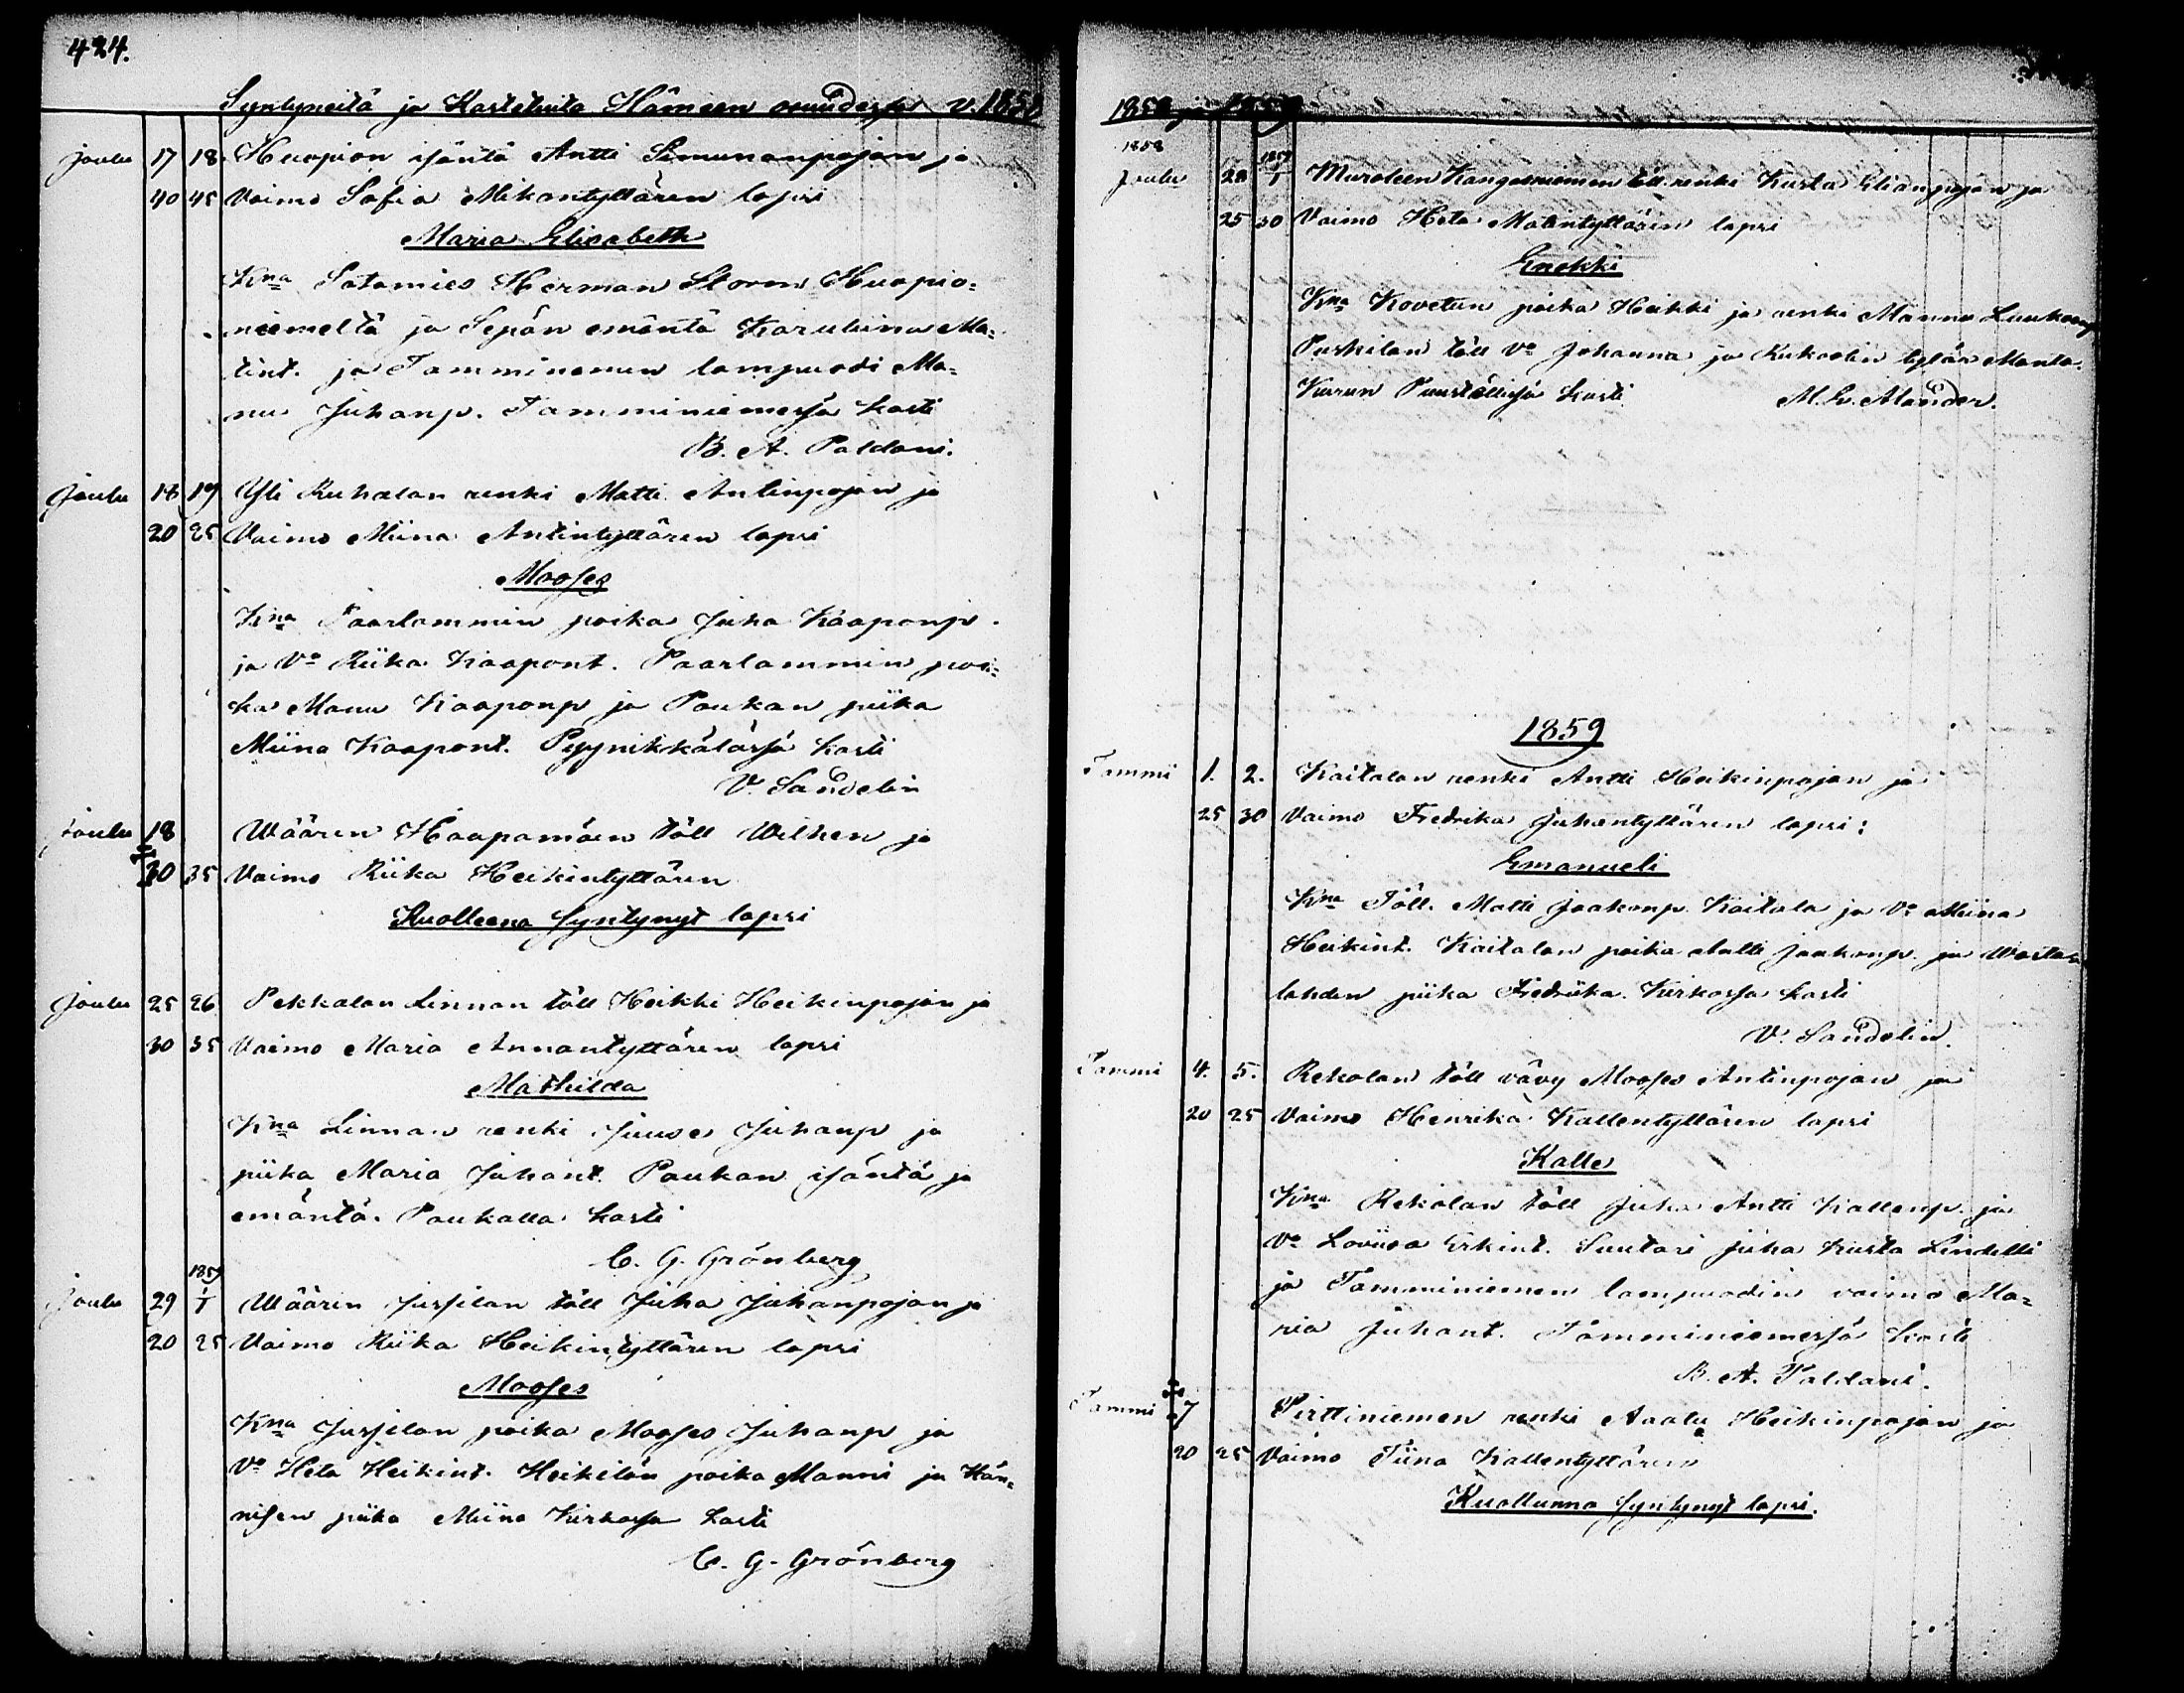 424.
Syntyneitä ja Kastetuita Hämeen osuudessa v. 1858
Joulu 17 18 Huapion isäntä Antti Simunanpojan ja
40 45 Vaimo Sofia Mikantyttären lapsi
Maria Elisabeth
Kna Satamies Herman Storm Huapio=
niemeltä ja Sepän emäntä Karuliina Ma=
tint. ja Tamminemen lampuodi Ma=
nu Juhanp. Tamminiemessä kasti
B. A. Paldani.
Joulu 18 19 Yli Ruhalan renki Matti Antinpojan ja
20 25 Vaimo Miina Antintyttären lapsi
Mooses
Kna Paarlammin poika Juha Kaaponp.
ja Vo Riika Kaapont. Paarlammin poi=
ka Manu Kaaponp ja Paukan piika
Miina Kaapont. Pyynikkälässä kasti
V. Sandelin
Joulu 18 Wäärin Haapamäen töll Wilhen ja
30 35 Vaimo Riika Heikintyttären
Kuolleena syntynyt lapsi
Joulu 25 26 Pekkalan Linnan töll Heikki Heikinpojan ja
30 35 Vaimo Maria Annantyttären lapsi
Mathilda
Kna Linnan renki Juuse Juhanp ja
piika Maria Juhant. Paukan isäntä ja
emäntä. Paukalla kasti
C. G. Grönberg
1859
Joulu 29 1 Wäärin Jussilan töll Juha Juhanpojan ja
20 25 Vaimo Riika Heikintyttären lapsi
Mooses
Kna Jussilan poika Mooses Juhanp ja
Vo Heta Heikint. Heikilän poika Manni ja Hän=
nisen piika Miina Kirkossa kasti
C. G. Grönberg
1858 ja 1859
1858 1859
Joulu 28 1 Muroleen Kangasniemen töll. renki Kusta Elianpojan ja
25 30 Vaimo Heta Matintyttären lapsi
Enokki
Kna Kovetun poika Heikki ja renki Mannu Luukanp
Puskilan töll Vo Johanna ja Kukoolin tytär Manta.
Kurun Puustellissa kasti M. L. Alander.
1859
Tammi 1. 2. Kaitalan renki Antti Heikinpojan ja
25 30 Vaimo Fredrika Juhantyttären lapsi:
Emanueli
Kna Töll. Matti Jaakonp. Kaitala ja Vo Miina
Heikint. Kaitalan poika Antti Jaakonp. ja
lahden piika Fredriika. Kirkossa kasti
V. Sandelin.
Tammi 4. 5. Rekolan töll vävy Mooses Antinpojan ja
20 25 Vaimo Henrika Kallentyttären lapsi
Kalle
Kna Rekolan töll Juha Antti Kallenp. ja
Vo Loviisa Erkint. Suutari Juha Kusta Lindelli
ja Tamminiemen lampuodin vaimo Ma=
ria Juhant. Tamminiemessä kasti
B. A. Paldani.
Tammi 7 Pirttiniemen renki Aaalu Heikinpojan ja
20 25 Vaimo Tiina Kallentyttären
Kuollunna syntynyt lapsi.